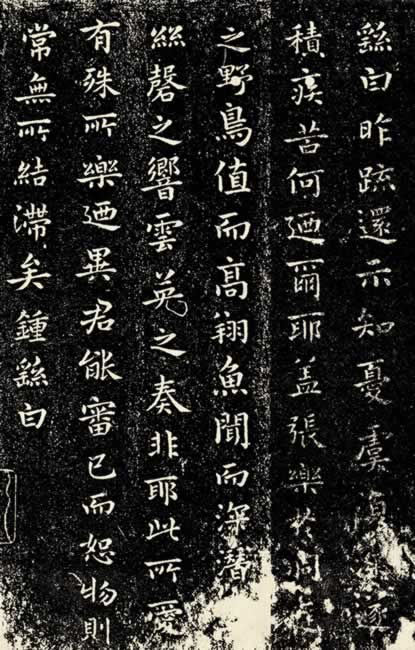 繇白昨疏還示知憂虞復深遂
積疾苦何迺爾耶盖張樂於洞庭
之野鳥值而高翔魚聞而深潛
絲磬之響雲英之奏非耶此所愛
有殊所樂迺異君能審已而恕物則
常無所結滯矣鍾繇白